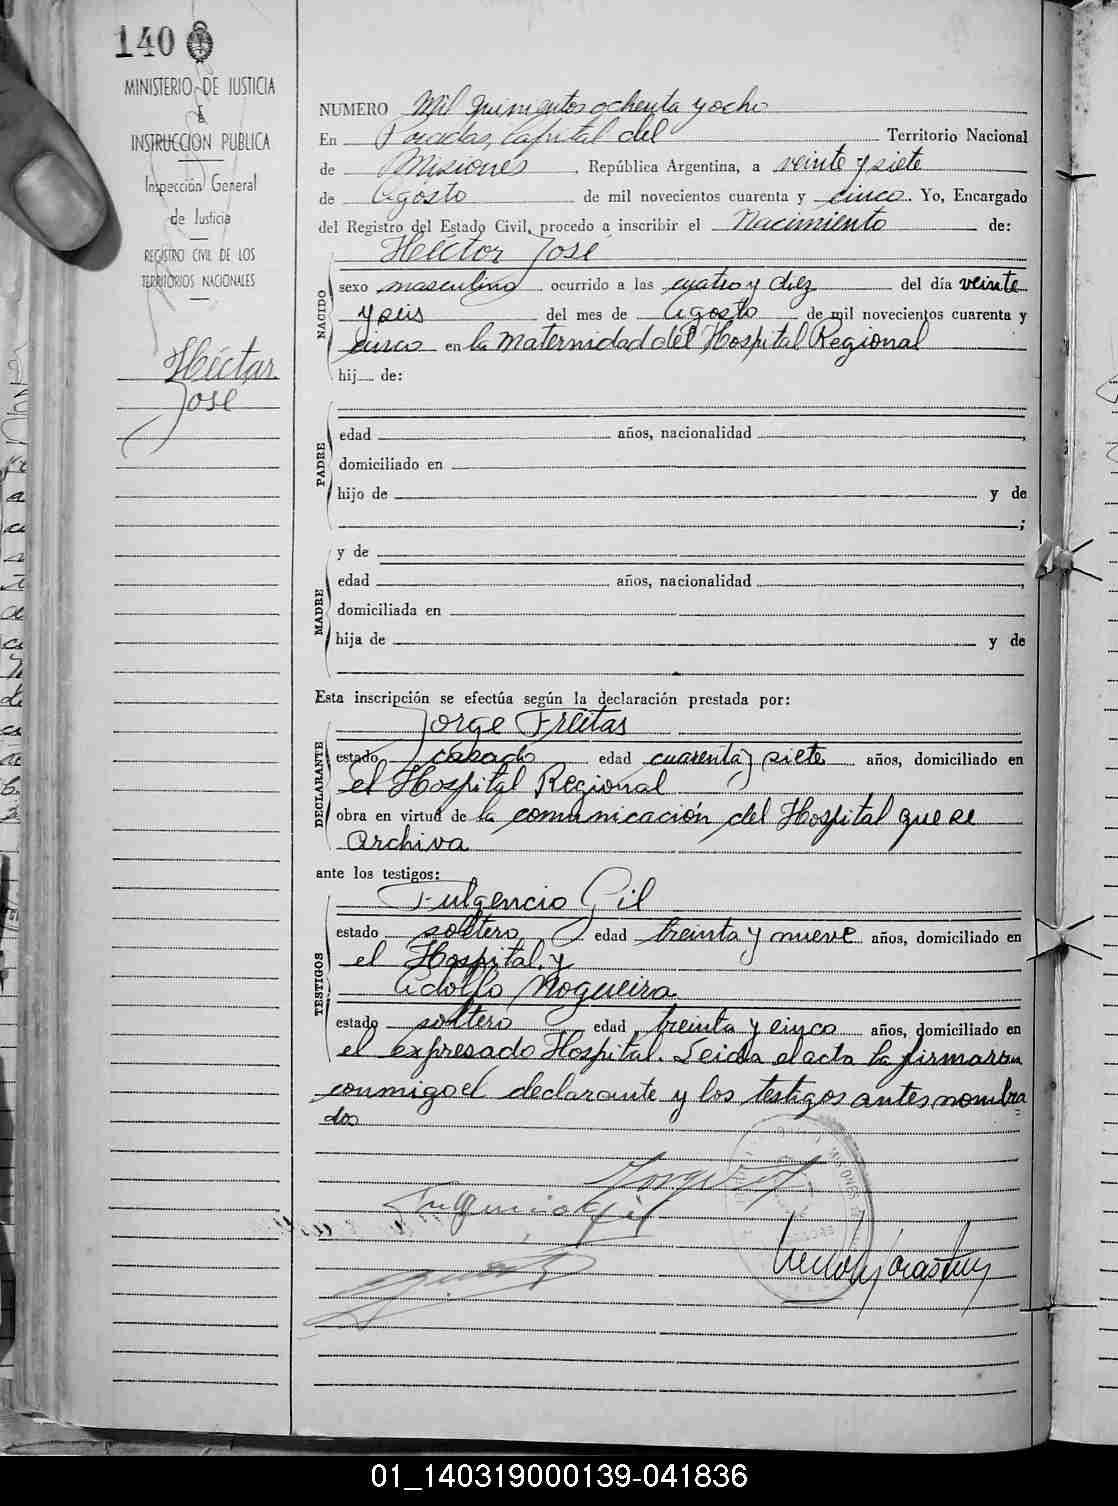 140
MINISTERIO DE JUSTICIA
E
INSTRUCCION PUBLICA
Inspección General
de Justicia
REGISTRO CIVIL DE LOS
TERRITORIOS NACIONALES
Héctor
José
NUMERO Mil quinientos ochenta y ocho
En Posadas, Capital del Territorio Nacional
de Misiones, República Argentina, a veinte y siete
de Agosto de mil novecientos cuarenta y cinco. Yo, Encargado
del Registro del Estado Civil, procedo a inscribir el Nacimiento de:
Héctor José
NACIDO
sexo masculino ocurrido a las cuatro y diez del día veinte
y seis del mes de Agosto de mil novecientos cuarenta y
cinco en la Maternidad del Hospital Regional
hij de:
PADRE
edad años, nacionalidad ,
domiciliado en
hijo de y de
;
MADRE
y de
edad años, nacionalidad ,
domiciliada en
hija de y de
Esta inscripción se efectúa según la declaración prestada por:
Jorge Freitas
DECLARANTE
estado casado edad cuarenta y siete años, domiciliado en
el Hospital Regional
obra en virtud de la comunicación del Hospital que se
archiva
ante los testigos:
Fulgencio Gil
TESTIGOS
estado soltero edad treinta y nueve años, domiciliado en
el Hospital y
Adolfo Nogueira
estado soltero edad treinta y cinco años, domiciliado en
el expresado Hospital. Leida el acta la firmaron
conmigo el declarante y los testigos antes nombra
dos
Fulgencio Gil
01_140319000139-041836